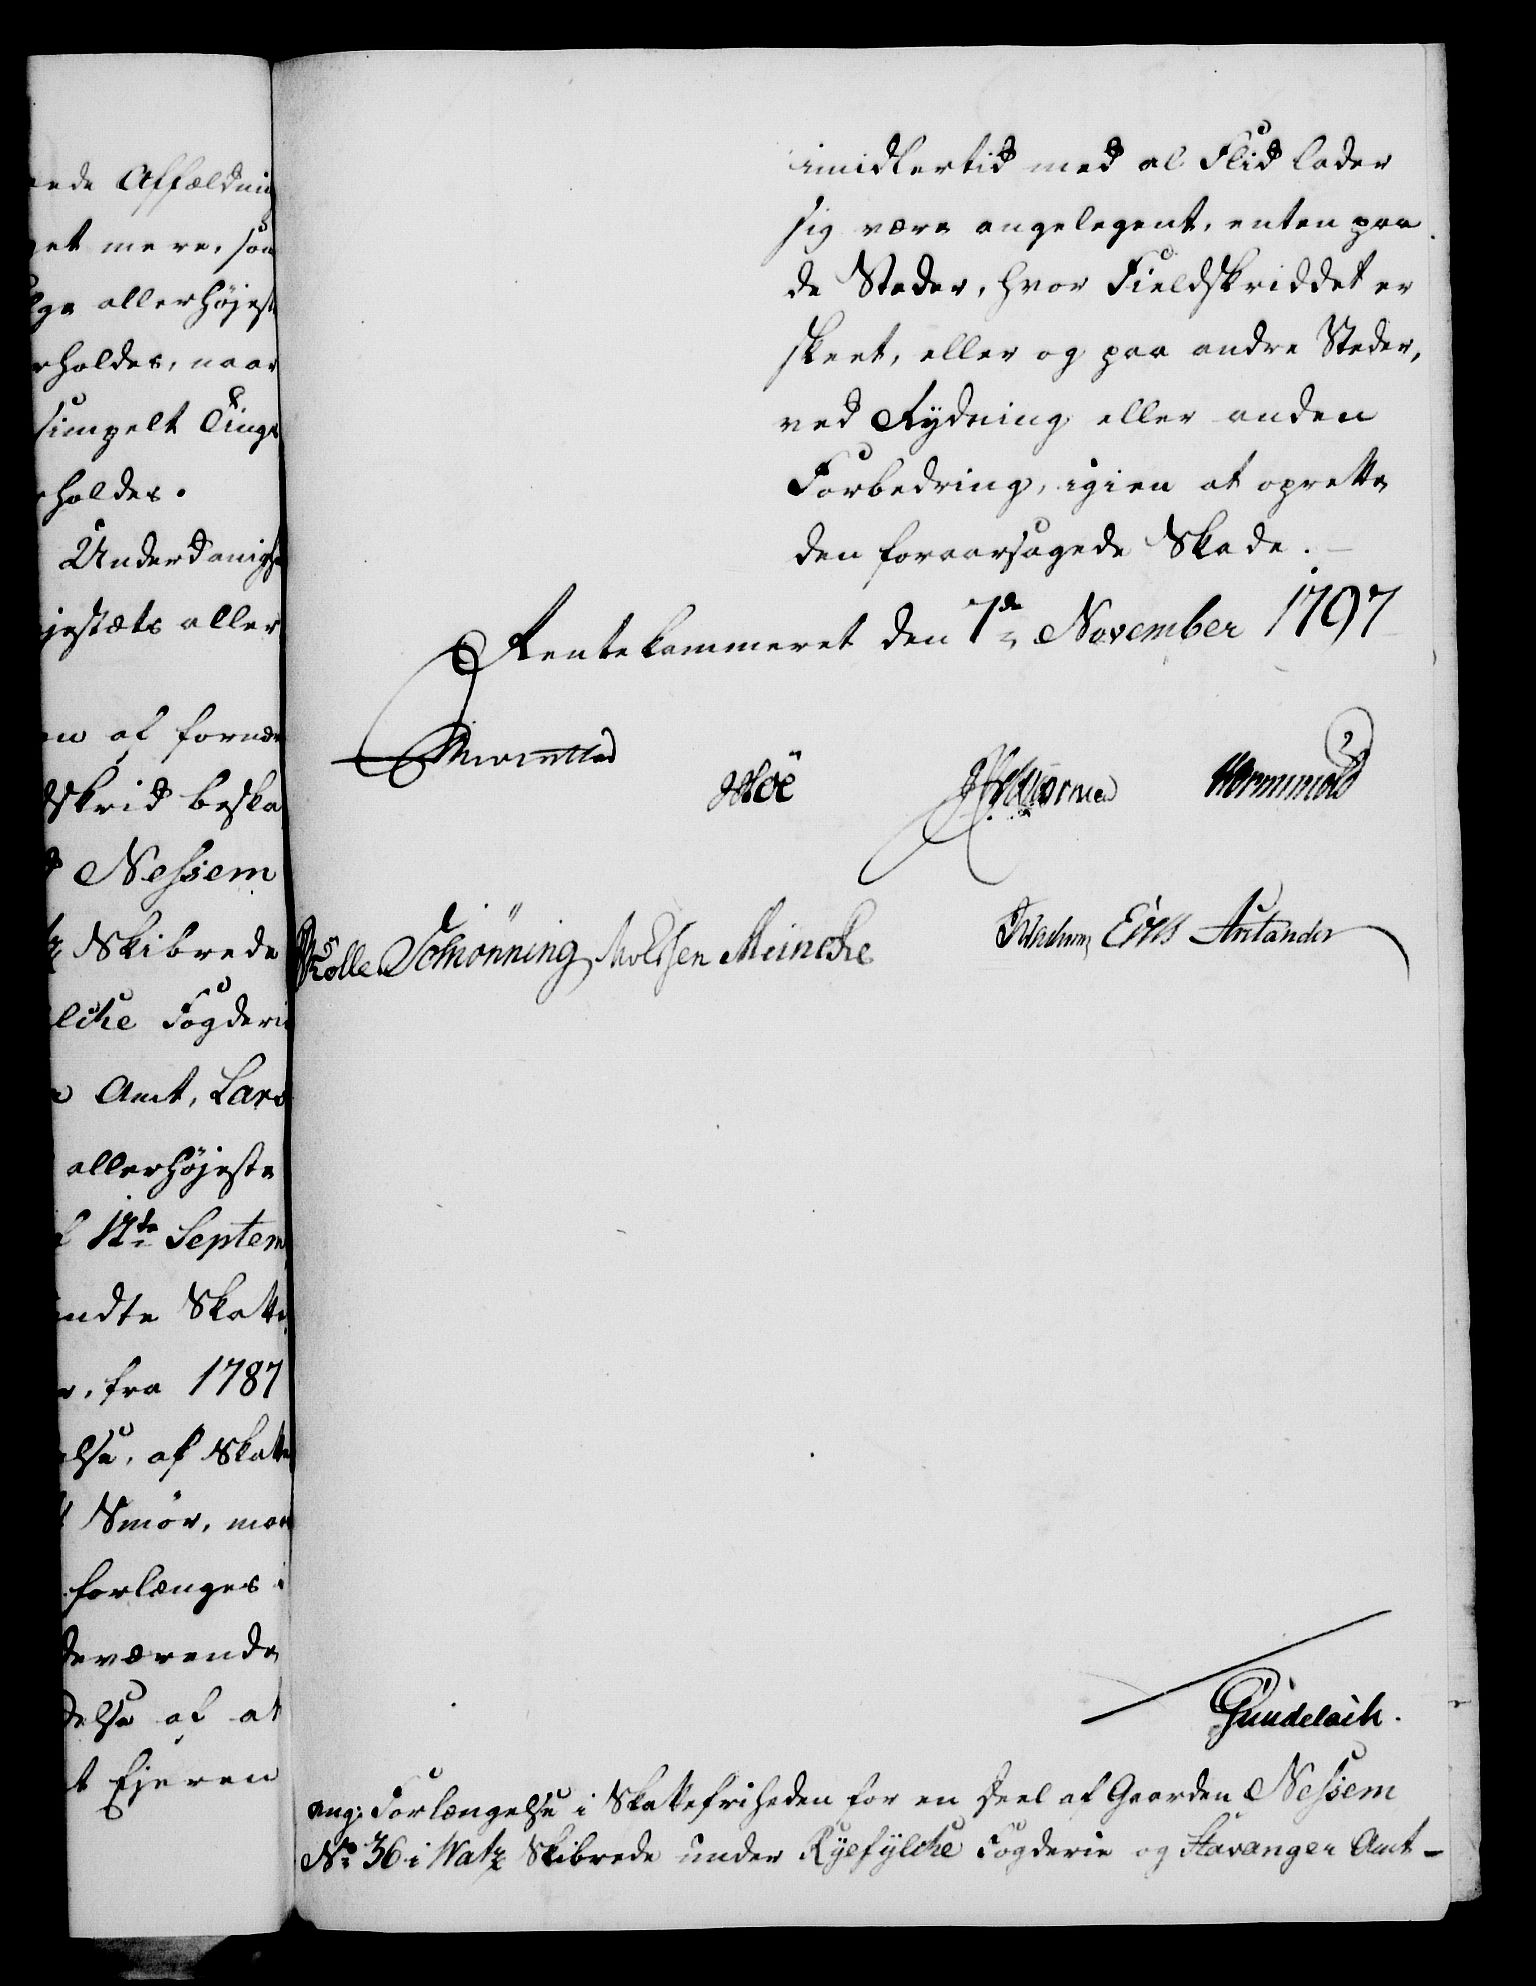 ede Affældni
et mere, som
lge allerhøjest
rholdes, naar
simpelt Tings
holdes.
Underdanigst
jestæts aller
en af fornæv
dskrid beska
Nessem
Skibrede
lche Fogderi
Amt, Lars
allerhøjeste
12te Septem
ndte Skatte
fra 1787
else, af Skatte
Smør, maa
forlænges i
deværende
delse af at
t Ejeren
imidlertid med al Flid lader
sig være angelegent, enten paa
de Steder, hvor Fieldskriddet er
skeet, eller og paa andre Steder,
ved Rydning eller anden
Forbedring, igien at oprette
den foraarsagede Skade.
Rentekammeret den 7de November 1797
Hoë Wormskiold
Schönning Meincke
Gundelach.
ang: Forlængelse i Skattefriheden for en deel af Gaarden Nessem
No 36 i Watz Skibrede under Ryefylche Fogderie og Stavanger Amt -